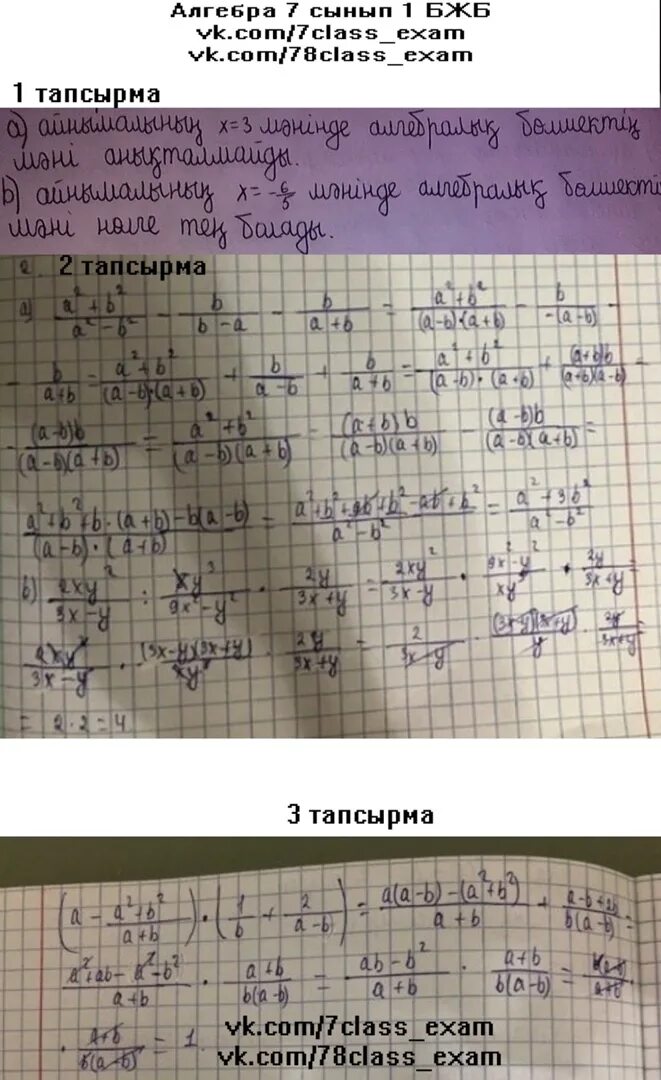 Алгебра 7 сынып 1 БЖБ
vk.com/7class_exam
vk.com/78class_exam
1 тапсырма
а) айнымалының x=3 мәнінде алгебралық бөлшектің
мәні анықталмайды.
b) айнымалының x=-6/5 мәнінде алгебралық бөлшекті
мәні нөлге тең болады.
2. 2 тапсырма
а) (a²+b²)/(a²-b²) - b/(b-a) - b/(a+b) = (a²+b²)/((a-b)·(a+b)) - b/(-(a-b)) -
- b/(a+b) = (a²+b²)/((a-b)·(a+b)) + b/(a-b) + b/(a+b) = (a²+b²)/((a-b)·(a+b)) + (a+b)b/((a+b)(a-b)) -
- (a-b)b/((a-b)(a+b)) = (a²+b²)/((a-b)(a+b)) - (a+b)b/((a-b)(a+b)) - (a-b)b/((a-b)(a+b)) =
(a²+b²+b·(a+b)-b(a-b))/((a-b)·(a+b)) = (a²+b²+ab+b²-ab+b²)/(a²-b²) = (a²+3b²)/(a²-b²)
b) 2xy²/(3x-y) : xy³/(9x²-y²) · 2y/(3x+y) = 2xy²/(3x-y) · (9x²-y²)/xy³ · 2y/(3x+y) =
2xy²/(3x-y) · (3x-y)(3x+y)/xy³ · 2y/(3x+y) = 2/(3x-y) · (3x-y)(3x+y)/y · 2y/(3x+y)
= 2·2=4
3 тапсырма
(a - (a²+b²)/(a+b)) · (1/b + 2/(a-b)) = (a(a-b)-(a²+b²))/(a+b) + (a-b+2b)/(b(a-b)) =
(a²+ab-a²-b²)/(a+b) · (a+b)/(b(a-b)) = (ab-b²)/(a+b) · (a+b)/(b(a-b)) = b(a-b)/(a+b)
· (a+b)/(b(a-b)) = 1.
vk.com/7class_exam
vk.com/78class_exam